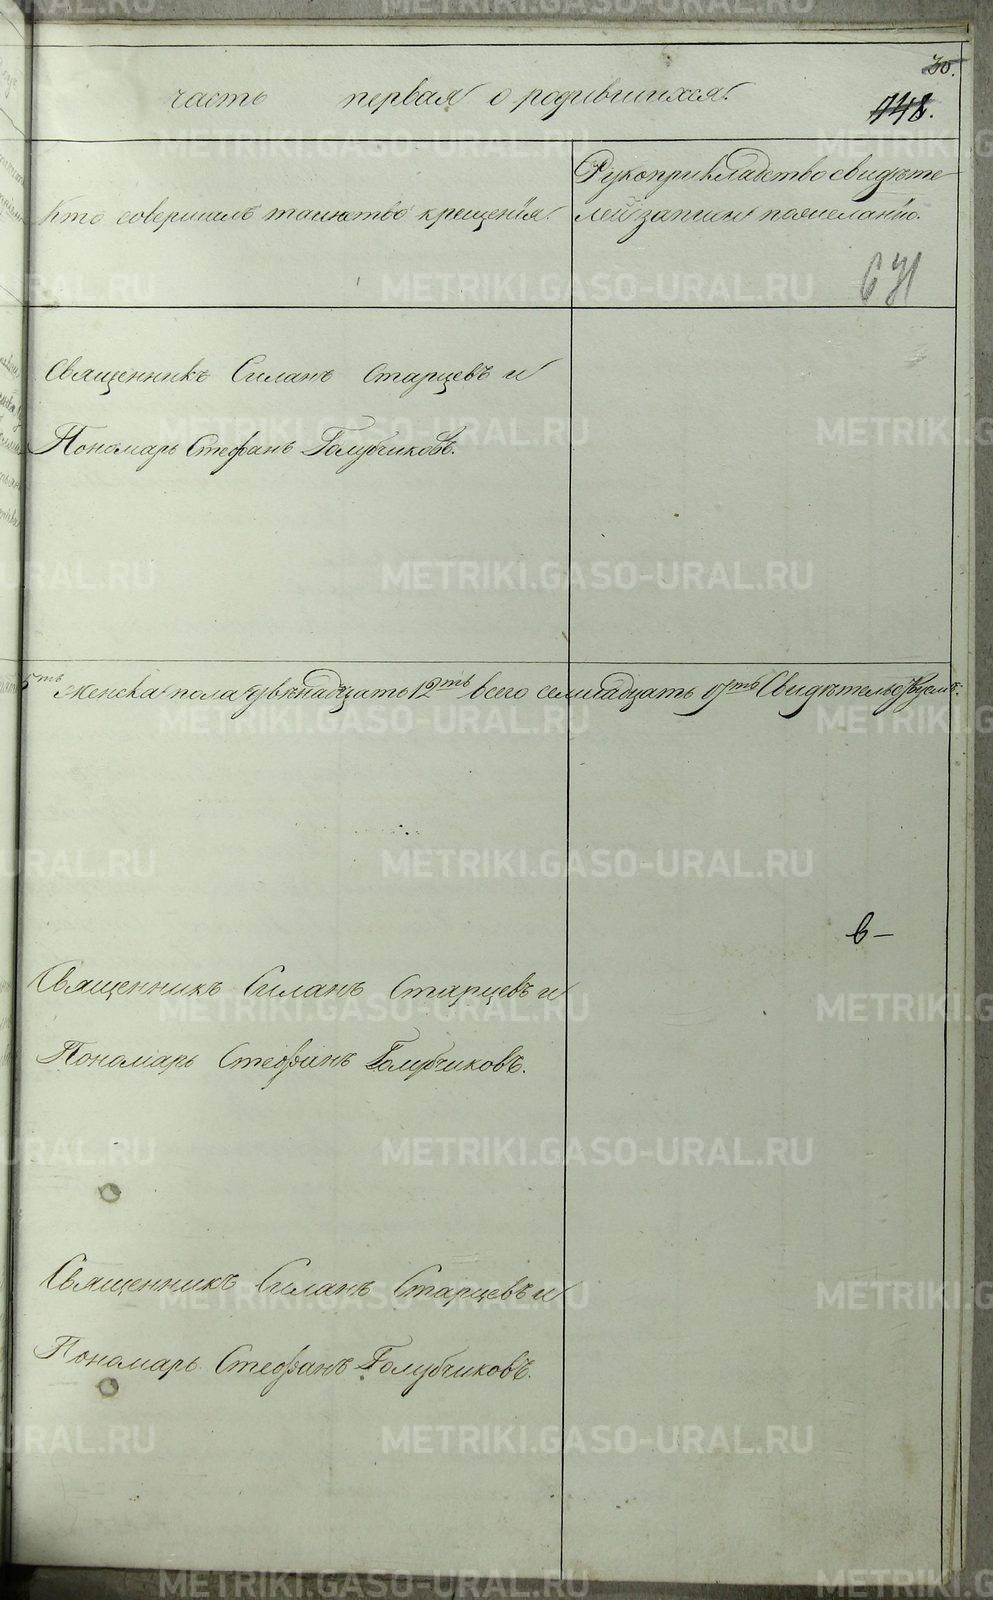 30.
часть первая о родившихся.
148.
Кто совершалъ таинство крещенія.
Рукоприкладство свидѣте-
лей записи по желанію.
671
Священникъ Силанъ Старцевъ и
Пономарь Стефанъ Голубчиковъ.
5ть Женска пола двѣнадцать 12ть всего семнадцать 17ть Свидѣтельствуемъ.
в–
Священникъ Силанъ Старцевъ и
Пономарь Стефанъ Голубчиковъ.
Священникъ Силанъ Старцевъ и
Пономарь Стефанъ Голубчиковъ.
METRIKI.GASO-URAL.RU